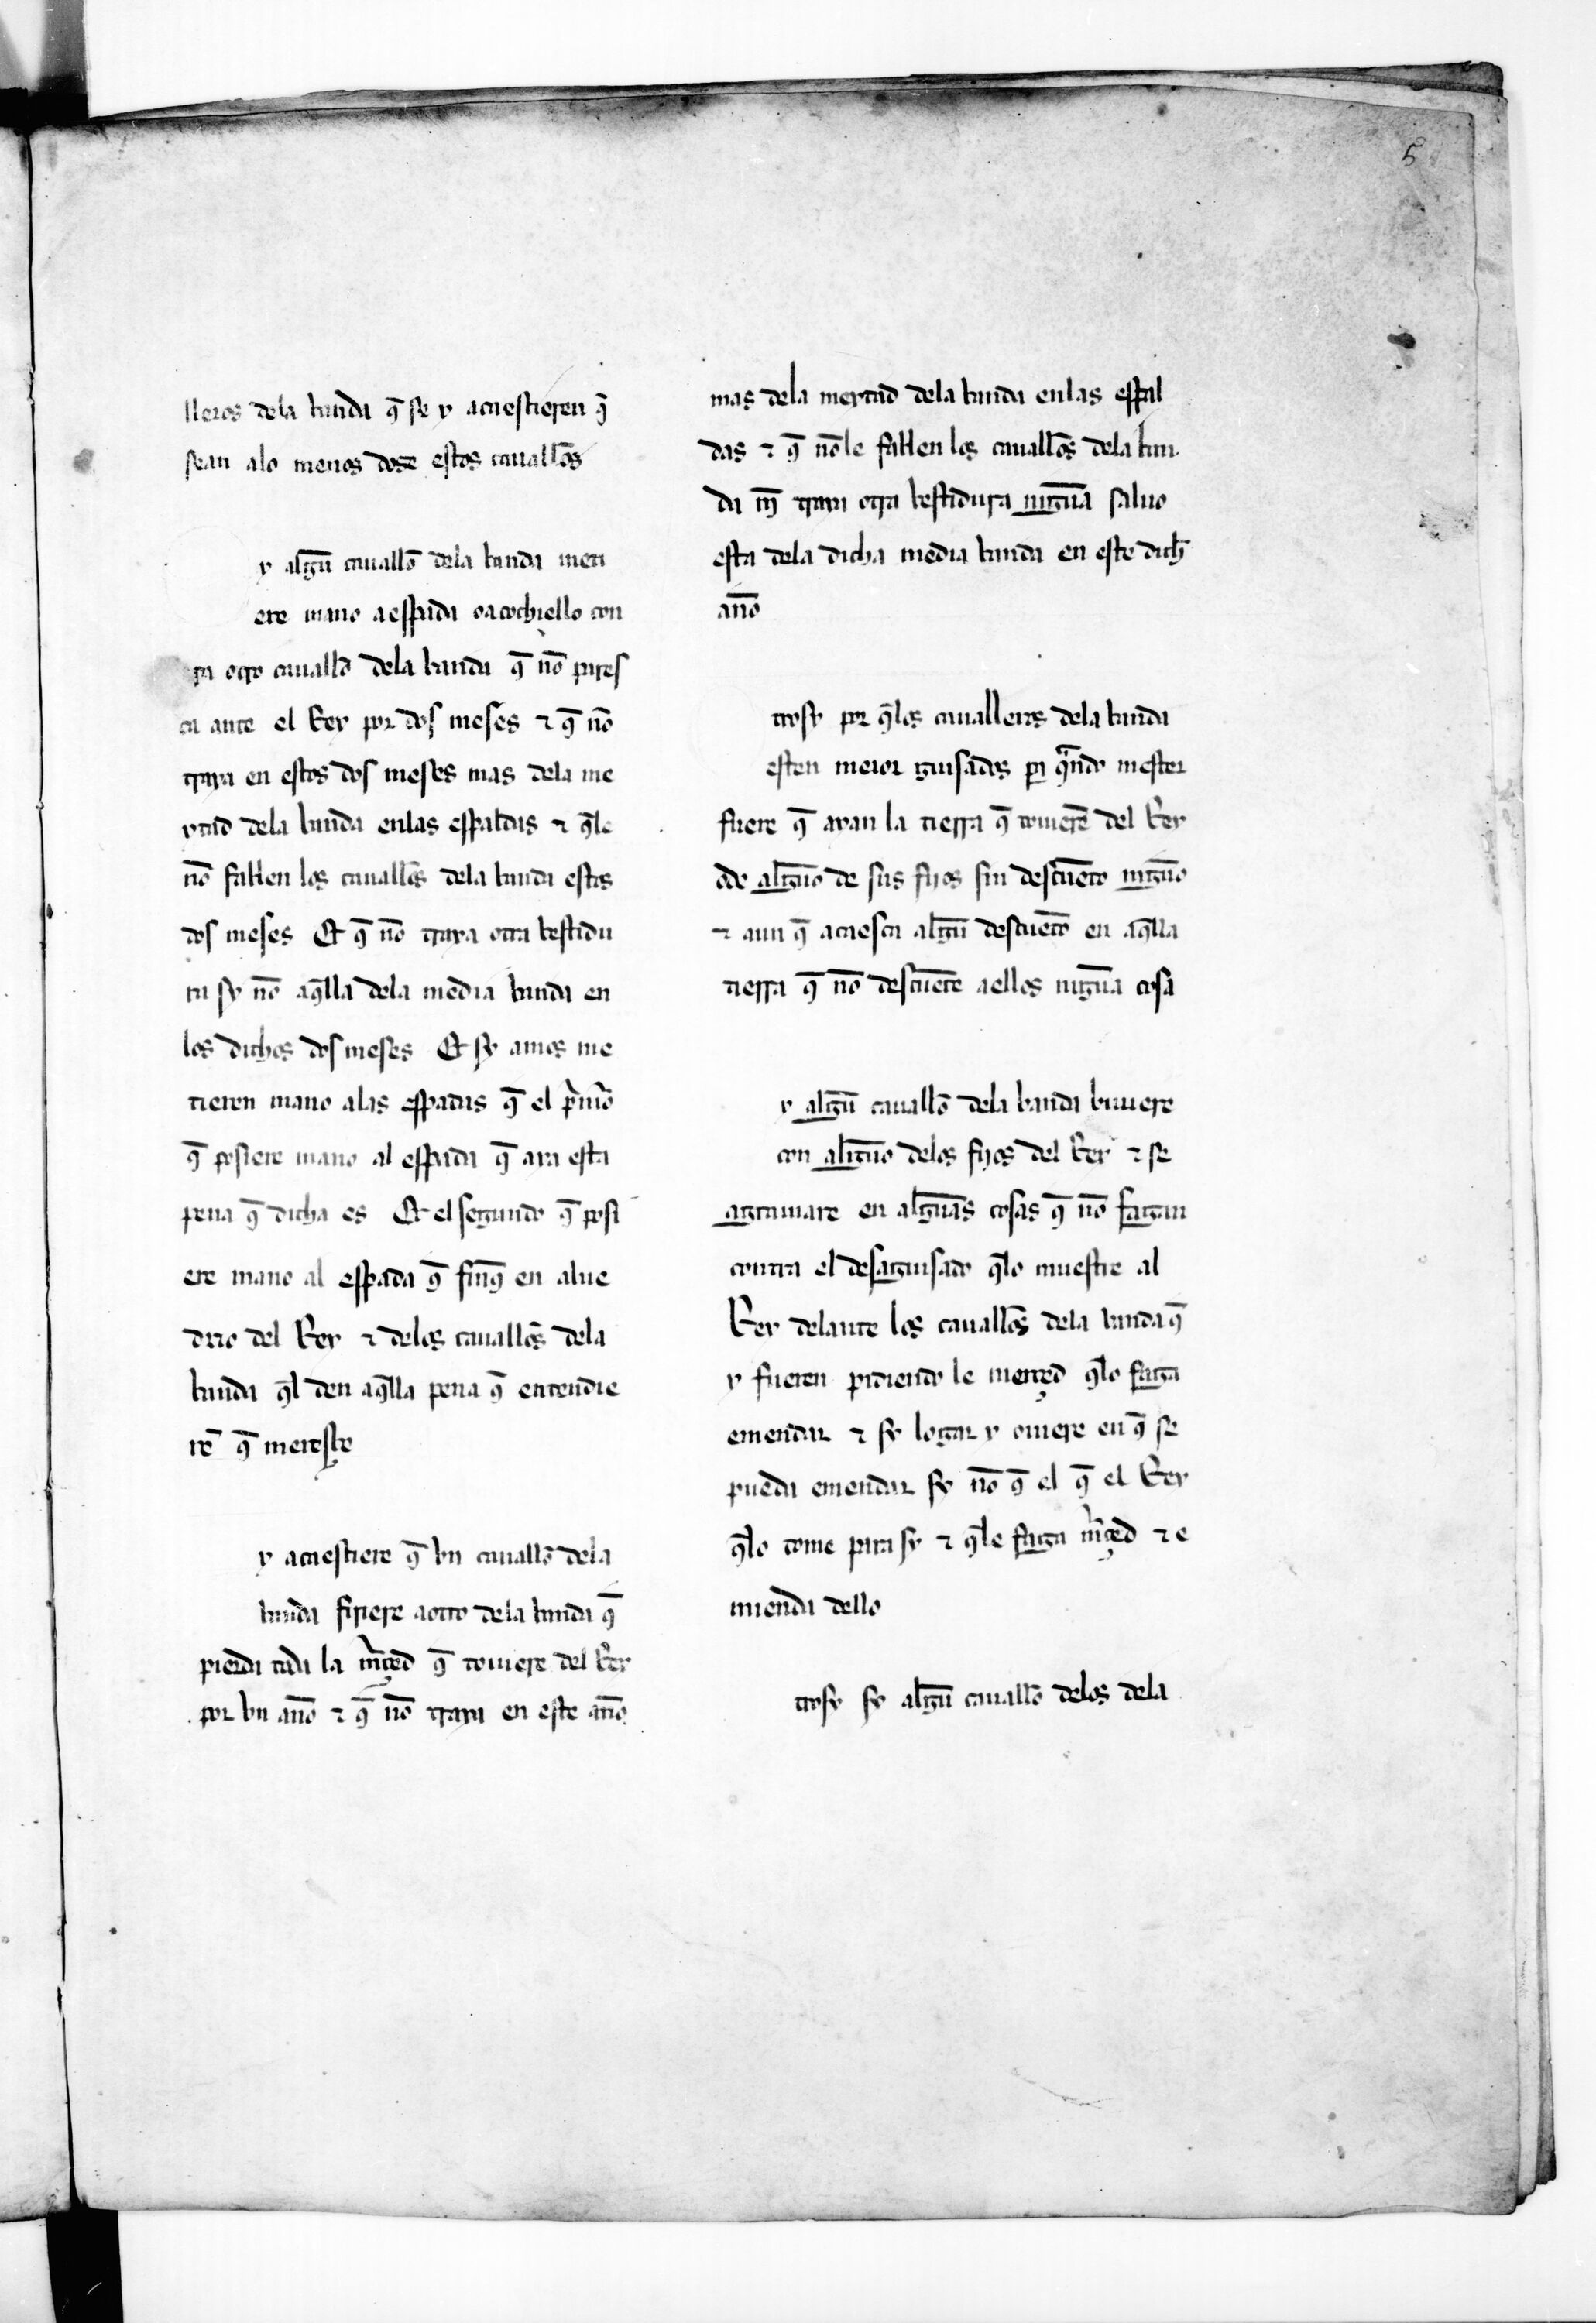 5
lleros dela banda q̄ se y acaesçieren q̄
sean alo menos dose estos cauallo᷑s
y algũ cauallo᷑ dela banda meti
ere mano a espada o a cochiello con
tra otro cauallo᷑ dela banda q̄ nõ pares
ca ante el Rey por dos meses ⁊ q̄ nõ
traya en estos dos meses mas dela me
ytad dela banda enlas espaldas ⁊ q̄le
nõ fablen los cauallo᷑s dela banda estos
dos meses Et q̄ nõ traya otra bestidu
ra sy nõ aq̄lla dela media banda en
los dichos dos meses Et sy amos me
tieren mano alas espadas q̄ el p̃mo᷑
q̄ posiere mano al espada q̄ aya esta
pena q̄ dicha es Et el segundo q̄ posi
ere mano al espada q̄ finq̄ en alue
drio del Rey ⁊ delos cauallo᷑s dela
banda q̄l den aq̄lla pena q̄ entendie
rẽ q̄ meresçe
y acaesçiere q̄ vn cauallo᷑ dela
banda firiere a otro dela banda q̄
pierda toda la m̃çed q̄ touiere del Rey
por vn año ⁊ q̄ nõ traya en este año
mas dela meytad dela banda enlas espal
das ⁊ q̄ nõ le fablen los cauallo᷑s dela ban
da nĩ traya otra bestidura nigũa saluo
esta dela dicha media banda en este dich̃
año
trosy por q̄los caualleros dela banda
esten meior guisados pa q̃ndo mester
fuere q̄ ayan la tierra q̄ touierẽ del Rey
o de algũo de sus fijos sin descuẽto nigũo
⁊ aun q̄ acaesca algũ descuẽto en aq̄lla
tierra q̄ nõ descuẽte a ellos nigũa cosa
y algũ cauallo᷑ dela banda biuiere
con algũo delos fijos del Rey ⁊ se
agrauiare en algũas cosas q̄ nõ fagan
contra el desaguisado q̄lo muestre al
Rey delante los cauallo᷑s dela banda q̄
y fueren pidiendo le merçed q̄lo faga
emendar ⁊ sy logar y ouiere en q̄ se
pueda emendar sy nõ q̄ el q̄ el Rey
q̄lo tome para sy ⁊ q̄le faga m̃çed ⁊ e
mienda dello
trosy sy algũ cauallo᷑ delos dela